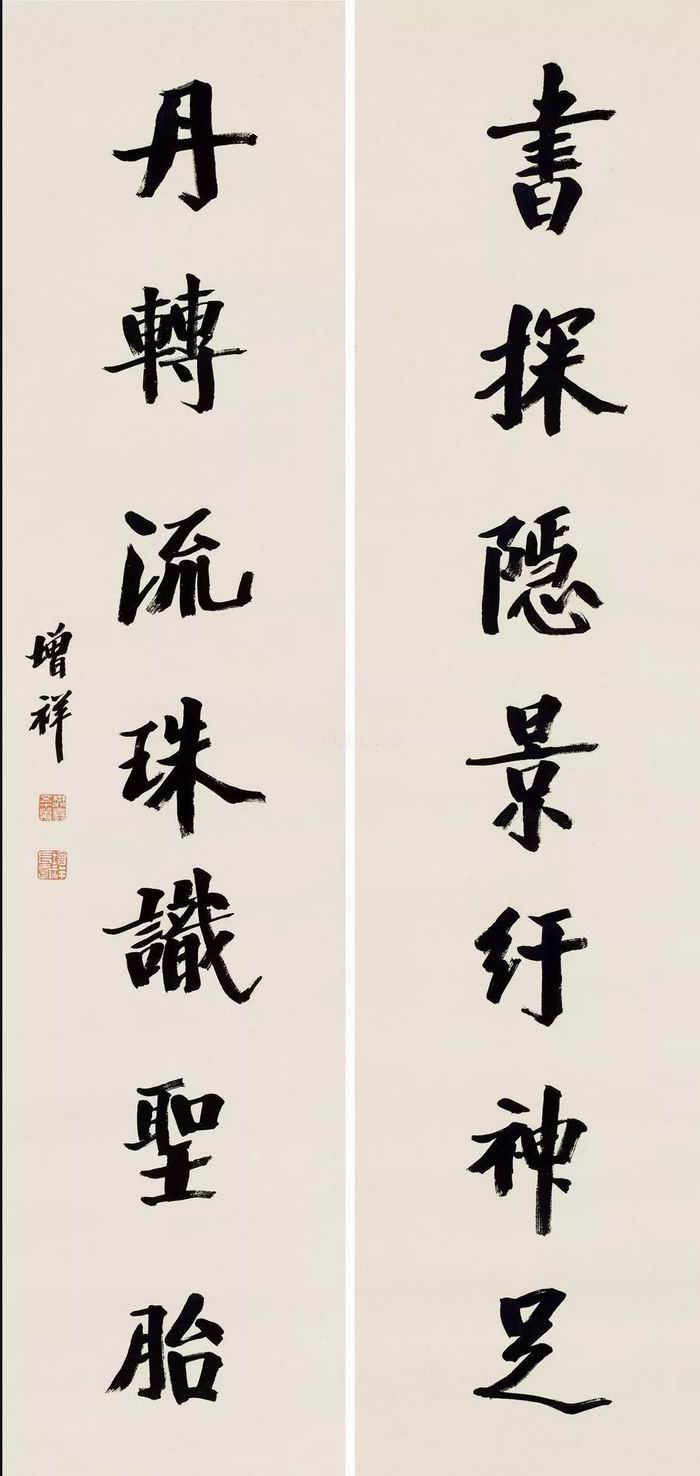 書探隱景紆神足
丹轉流珠識聖胎
增祥